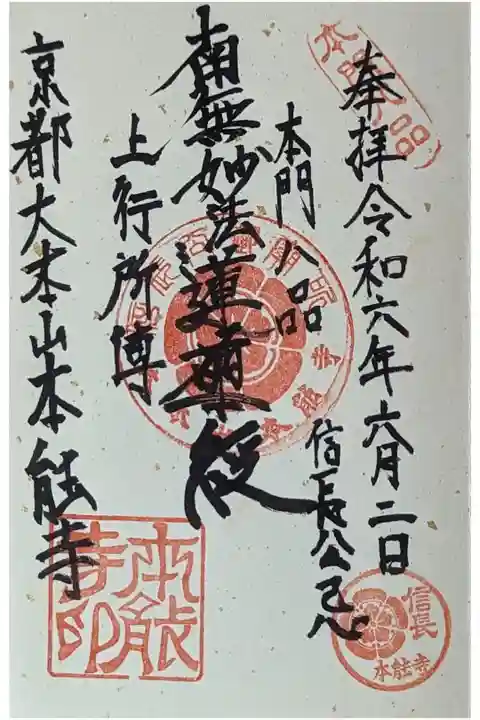 本門八品
奉拝令和六年六月二日
信長公忌
本門八品
南無妙法蓮華経
上行所傳
京都大本山本能寺
信長
本能寺
本能寺印